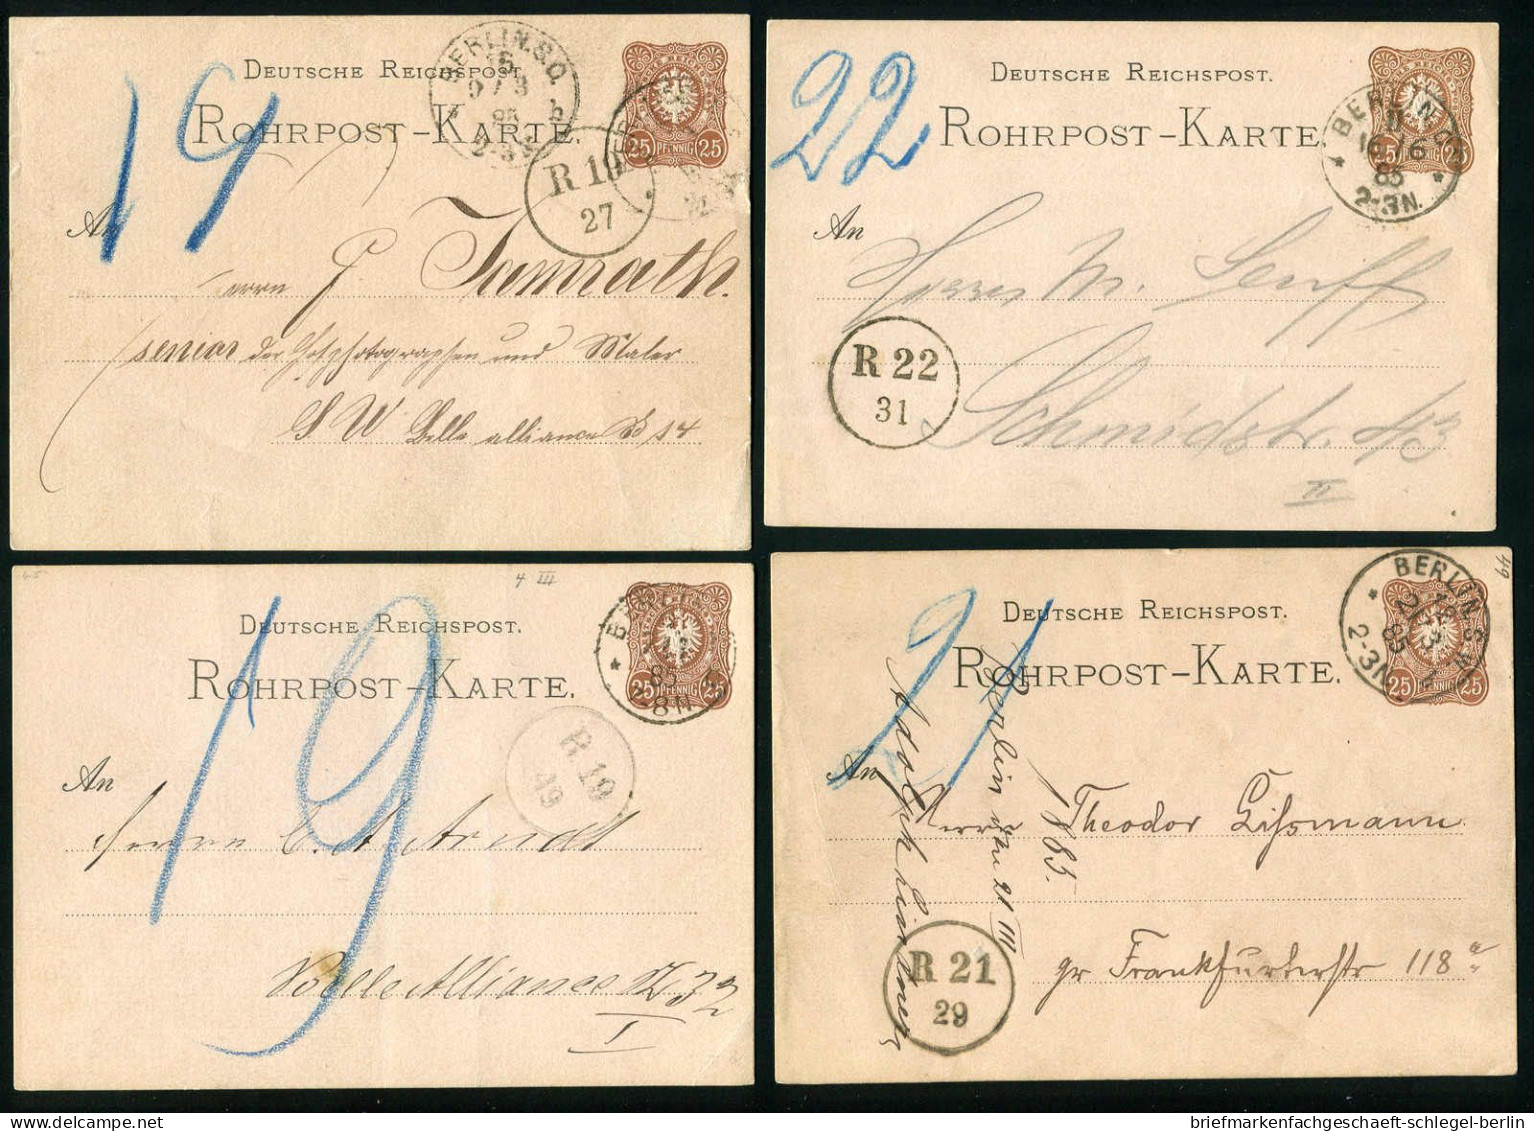 DEUTSCHE REICHSPOST.
ROHRPOST-KARTE
19
BERLIN.S.O.
25 PFENNIG 25
R 19
27
An
Herrn J. Tamrath.
senior der Hofphotographen und Maler
SW Belle alliance 14
DEUTSCHE REICHSPOST.
ROHRPOST-KARTE
22
BERLIN
16/6
85
2-3N.
25 PFENNIG 25
An
Herrn M. Senff
R 22
31
Schmidstr. 43
II
4 III
DEUTSCHE REICHSPOST.
ROHRPOST-KARTE.
19
25 PFENNIG 25
R 19
49
An
Herrn C. A. Arndt
Belle Alliance 32
I
49
DEUTSCHE REICHSPOST.
ROHRPOST-KARTE.
21
BERLIN S.W.
21/3
85
2-3N
25 PFENNIG 25
An
Herrn Theodor Lissmann.
gr Frankfurterstr 118 a
Berlin den 21 III
1885.
Adolph
R 21
29
briefmarkenfachgeschaeft-schlegel-berlin